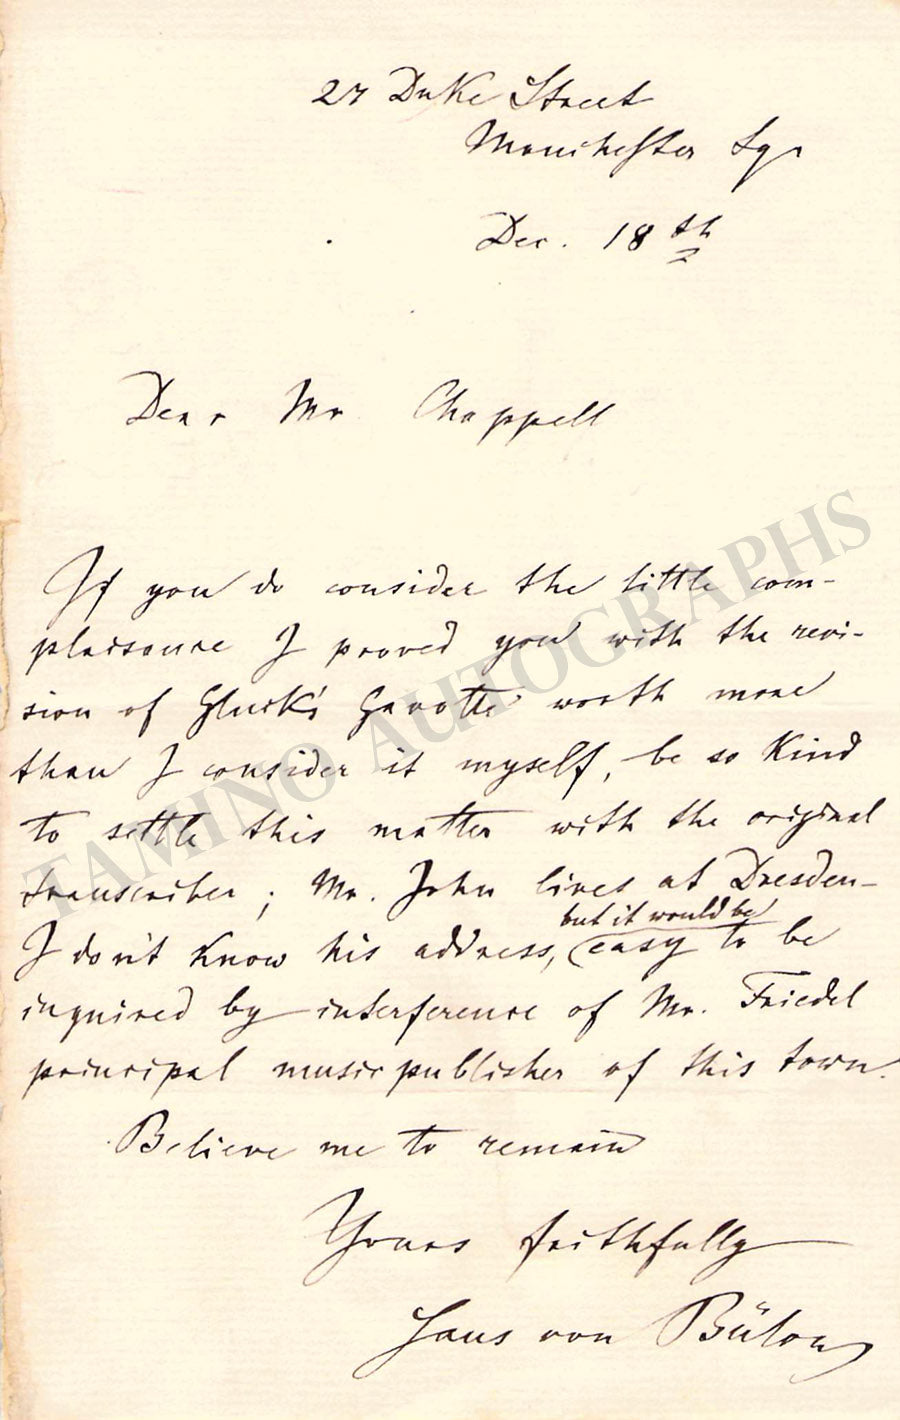 27 Duke Street
Manchester Sqr
Dec. 18th
Dear Mr Chappell
If you do consider the little com-
plaisance I proved you with the revi-
sion of Gluck's Gavotte worth more
than I consider it myself, be so kind
to settle this matter with the original
transcriber; Mr. John lives at Dresden-
I don't know his address, (but it would be) easy to be
inquired by interference of Mr. Friedel
principal musicpublisher of this town.
Believe me to remain
Yours faithfully
Hans von Bülow
TAMINO AUTOGRAPHS